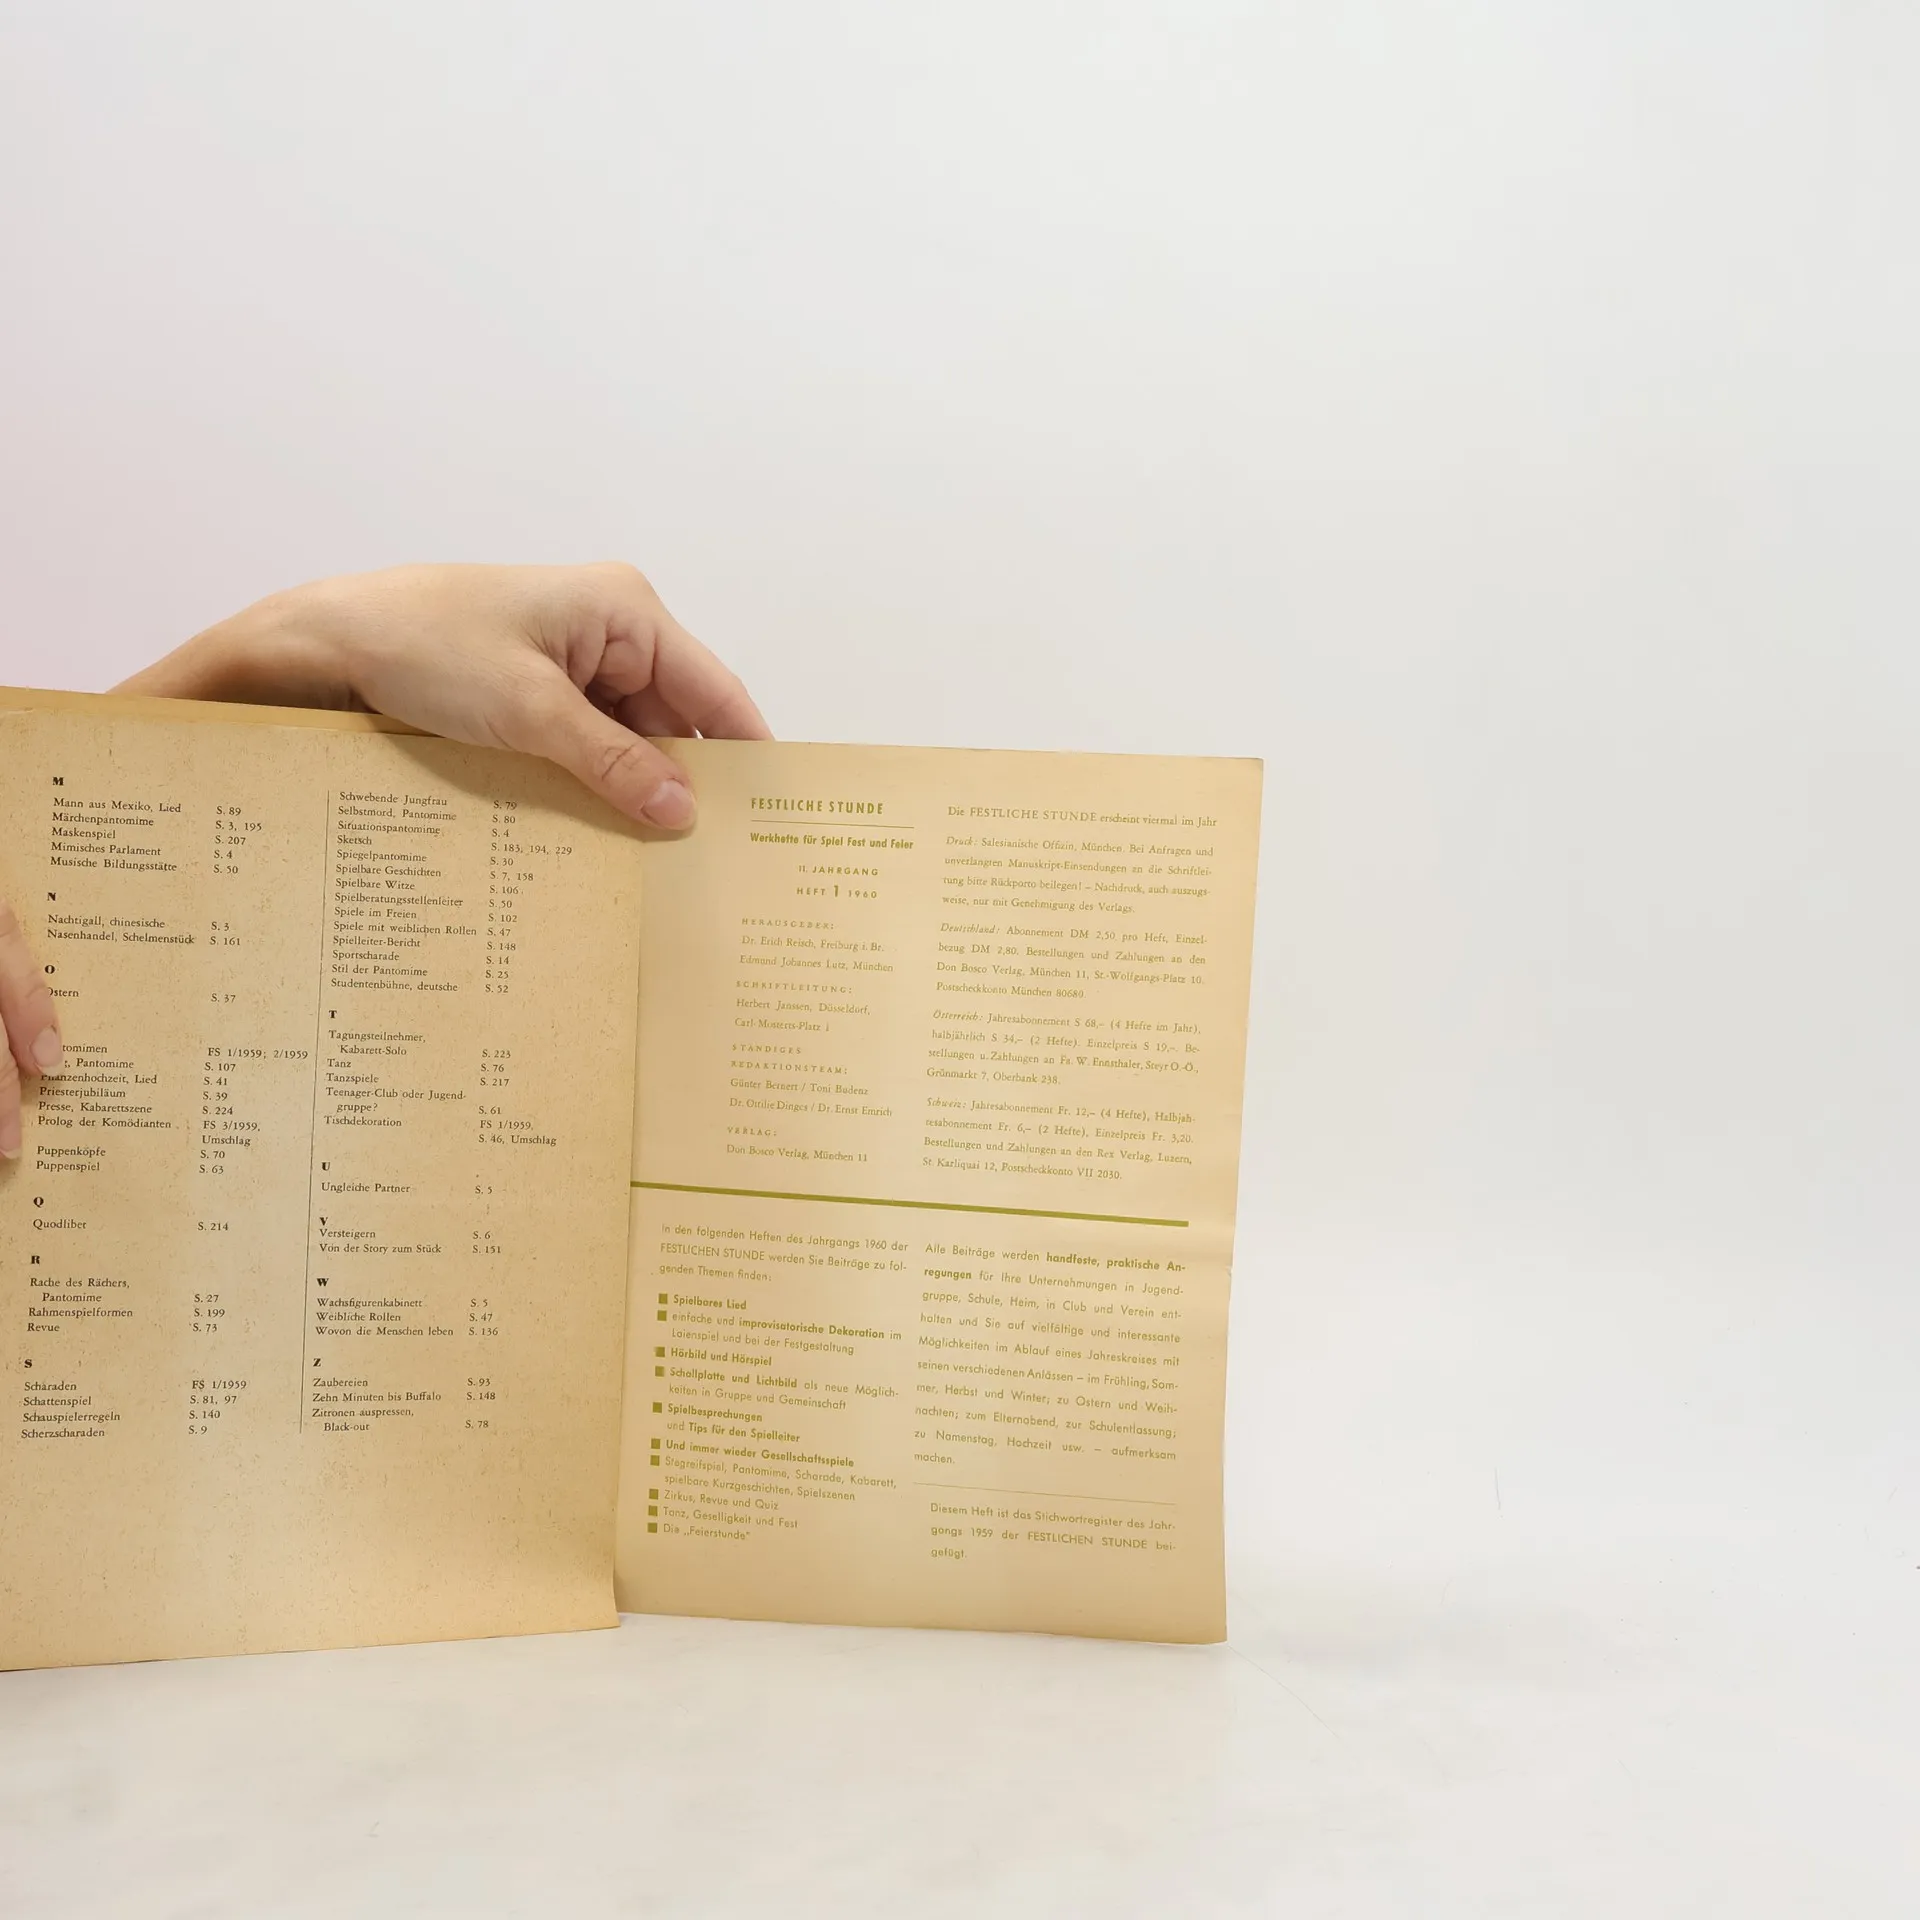 M
Mann aus Mexiko, Lied S. 89
Märchenpantomime S. 3, 195
Maskenspiel S. 207
Mimisches Parlament S. 4
Musische Bildungsstätte S. 50
N
Nachtigall, chinesische S. 3
Nasenhandel, Schelmenstück S. 161
O
Ostern S. 37
tomimen FS 1/1959; 2/1959
Pantomime S. 107
Pflanzenhochzeit, Lied S. 41
Priesterjubiläum S. 39
Presse, Kabarettszene S. 224
Prolog der Komödianten FS 3/1959,
Umschlag
Puppenköpfe S. 70
Puppenspiel S. 63
Q
Quodlibet S. 214
R
Rache des Rächers,
Pantomime S. 27
Rahmenspielformen S. 199
Revue S. 73
S
Scharaden FS 1/1959
Schattenspiel S. 81, 97
Schauspielerregeln S. 140
Scherzscharaden S. 9
Schwebende Jungfrau S. 79
Selbstmord, Pantomime S. 80
Situationspantomime S. 4
Sketsch S. 183, 194, 229
Spiegelpantomime S. 30
Spielbare Geschichten S. 7, 158
Spielbare Witze S. 106
Spielberatungsstellenleiter S. 50
Spiele im Freien S. 102
Spiele mit weiblichen Rollen S. 47
Spielleiter-Bericht S. 148
Sportscharade S. 14
Stil der Pantomime S. 25
Studentenbühne, deutsche S. 52
T
Tagungsteilnehmer,
Kabarett-Solo S. 223
Tanz S. 76
Tanzspiele S. 217
Teenager-Club oder Jugend-
gruppe? S. 61
Tischdekoration FS 1/1959,
S. 46, Umschlag
U
Ungleiche Partner S. 5
V
Versteigern S. 6
Von der Story zum Stück S. 151
W
Wachsfigurenkabinett S. 5
Weibliche Rollen S. 47
Wovon die Menschen leben S. 136
Z
Zaubereien S. 93
Zehn Minuten bis Buffalo S. 148
Zitronen auspressen,
Black-out S. 78
FESTLICHE STUNDE
Werkhefte für Spiel Fest und Feier
11. JAHRGANG
HEFT 1 1960
HERAUSGEBER:
Dr. Erich Reisch, Freiburg i. Br.
Edmund Johannes Lutz, München
SCHRIFTLEITUNG:
Herbert Janssen, Düsseldorf,
Carl-Mosterts-Platz 1
STÄNDIGES
REDAKTIONSTEAM:
Günter Bernert / Toni Budenz
Dr. Ottilie Dinges / Dr. Ernst Emrich
VERLAG:
Don Bosco Verlag, München 11
Die FESTLICHE STUNDE erscheint viermal im Jahr
Druck: Salesianische Offizin, München. Bei Anfragen und
unverlangten Manuskript-Einsendungen an die Schriftlei-
tung bitte Rückporto beilegen! – Nachdruck, auch auszugs-
weise, nur mit Genehmigung des Verlags.
Deutschland: Abonnement DM 2,50 pro Heft, Einzel-
bezug DM 2,80. Bestellungen und Zahlungen an den
Don Bosco Verlag, München 11, St.-Wolfgangs-Platz 10.
Postscheckkonto München 80680.
Österreich: Jahresabonnement S 68,– (4 Hefte im Jahr),
halbjährlich S 34,– (2 Hefte). Einzelpreis S 19,–. Be-
stellungen u. Zahlungen an Fa. W. Ennsthaler, Steyr O.-Ö.,
Grünmarkt 7, Oberbank 238.
Schweiz: Jahresabonnement Fr. 12,– (4 Hefte), Halbjah-
resabonnement Fr. 6,– (2 Hefte), Einzelpreis Fr. 3,20.
Bestellungen und Zahlungen an den Rex Verlag, Luzern,
St. Karliquai 12, Postscheckkonto VII 2030.
In den folgenden Heften des Jahrgangs 1960 der
FESTLICHEN STUNDE werden Sie Beiträge zu fol-
genden Themen finden:
Spielbares Lied
einfache und improvisatorische Dekoration im
Laienspiel und bei der Festgestaltung
Hörbild und Hörspiel
Schallplatte und Lichtbild als neue Möglich-
keiten in Gruppe und Gemeinschaft
Spielbesprechungen
und Tips für den Spielleiter
Und immer wieder Gesellschaftsspiele
Stegreifspiel, Pantomime, Scharade, Kabarett,
spielbare Kurzgeschichten, Spielszenen
Zirkus, Revue und Quiz
Tanz, Geselligkeit und Fest
Die „Feierstunde"
Alle Beiträge werden handfeste, praktische An-
regungen für Ihre Unternehmungen in Jugend-
gruppe, Schule, Heim, in Club und Verein ent-
halten und Sie auf vielfältige und interessante
Möglichkeiten im Ablauf eines Jahreskreises mit
seinen verschiedenen Anlässen – im Frühling, Som-
mer, Herbst und Winter; zu Ostern und Weih-
nachten; zum Elternabend, zur Schulentlassung;
zu Namenstag, Hochzeit usw. – aufmerksam
machen.
Diesem Heft ist das Stichwortregister des Jahr-
gangs 1959 der FESTLICHEN STUNDE bei-
gefügt.